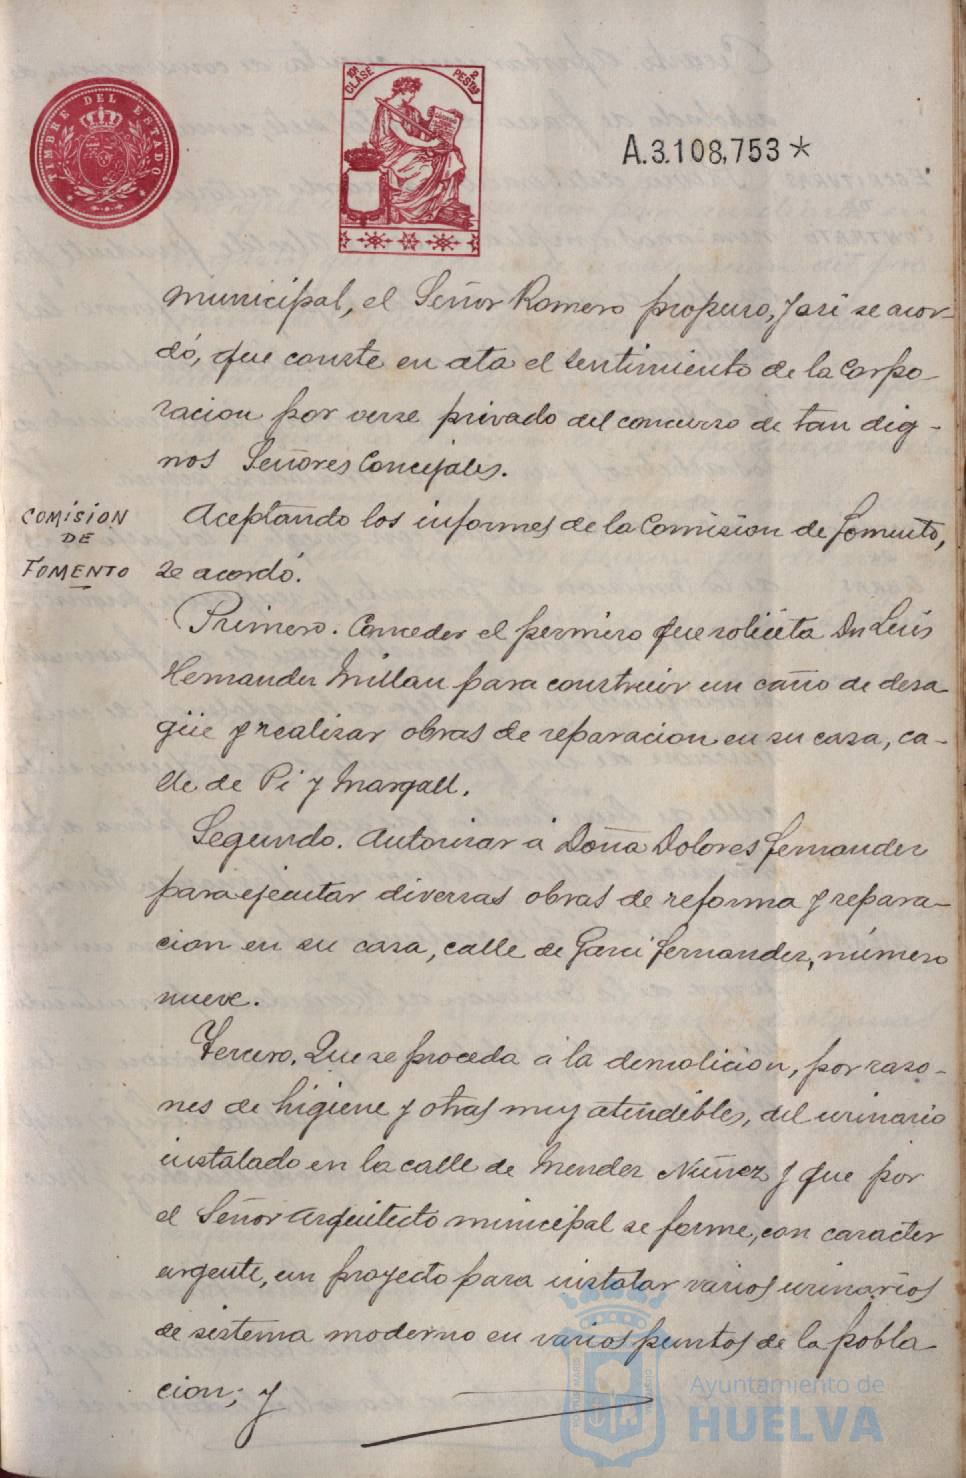 TIMBRE DEL ESTADO
10ª CLASE
2 PESTAS
A.3.108,753*
municipal, el Señor Romero propuso, y asi se acor-
dó, que conste en ata el sentimiento de la Corpo-
racion por verse privado del concurso de tan dig-
nos Señores Concejales.
COMISION
DE
FOMENTO
Aceptando los informes de la Comision de Fomento,
se acordó.
Primero. Conceder el permiso que solicita Dn Luis
Hernandez Millan para construir un caño de desa-
güe y realizar obras de reparacion en su casa, ca-
lle de Pi y Margall.
Segundo. Autorizar á Doña Dolores Fernandez
para ejecutar diversas obras de reforma y repara-
cion en su casa, calle de Garci Fernandez, número
nueve.
Tercero. Que se proceda á la demolicion, por razo-
nes de higiene y otras muy atendibles, del urinario
instalado en la calle de Mendez Nuñez y que por
el Señor Arquitecto municipal se forme, con caracter
urgente, un proyecto para instalar varios urinarios
de sistema moderno en varios puntos de la pobla-
cion; y
Ayuntamiento de
HUELVA